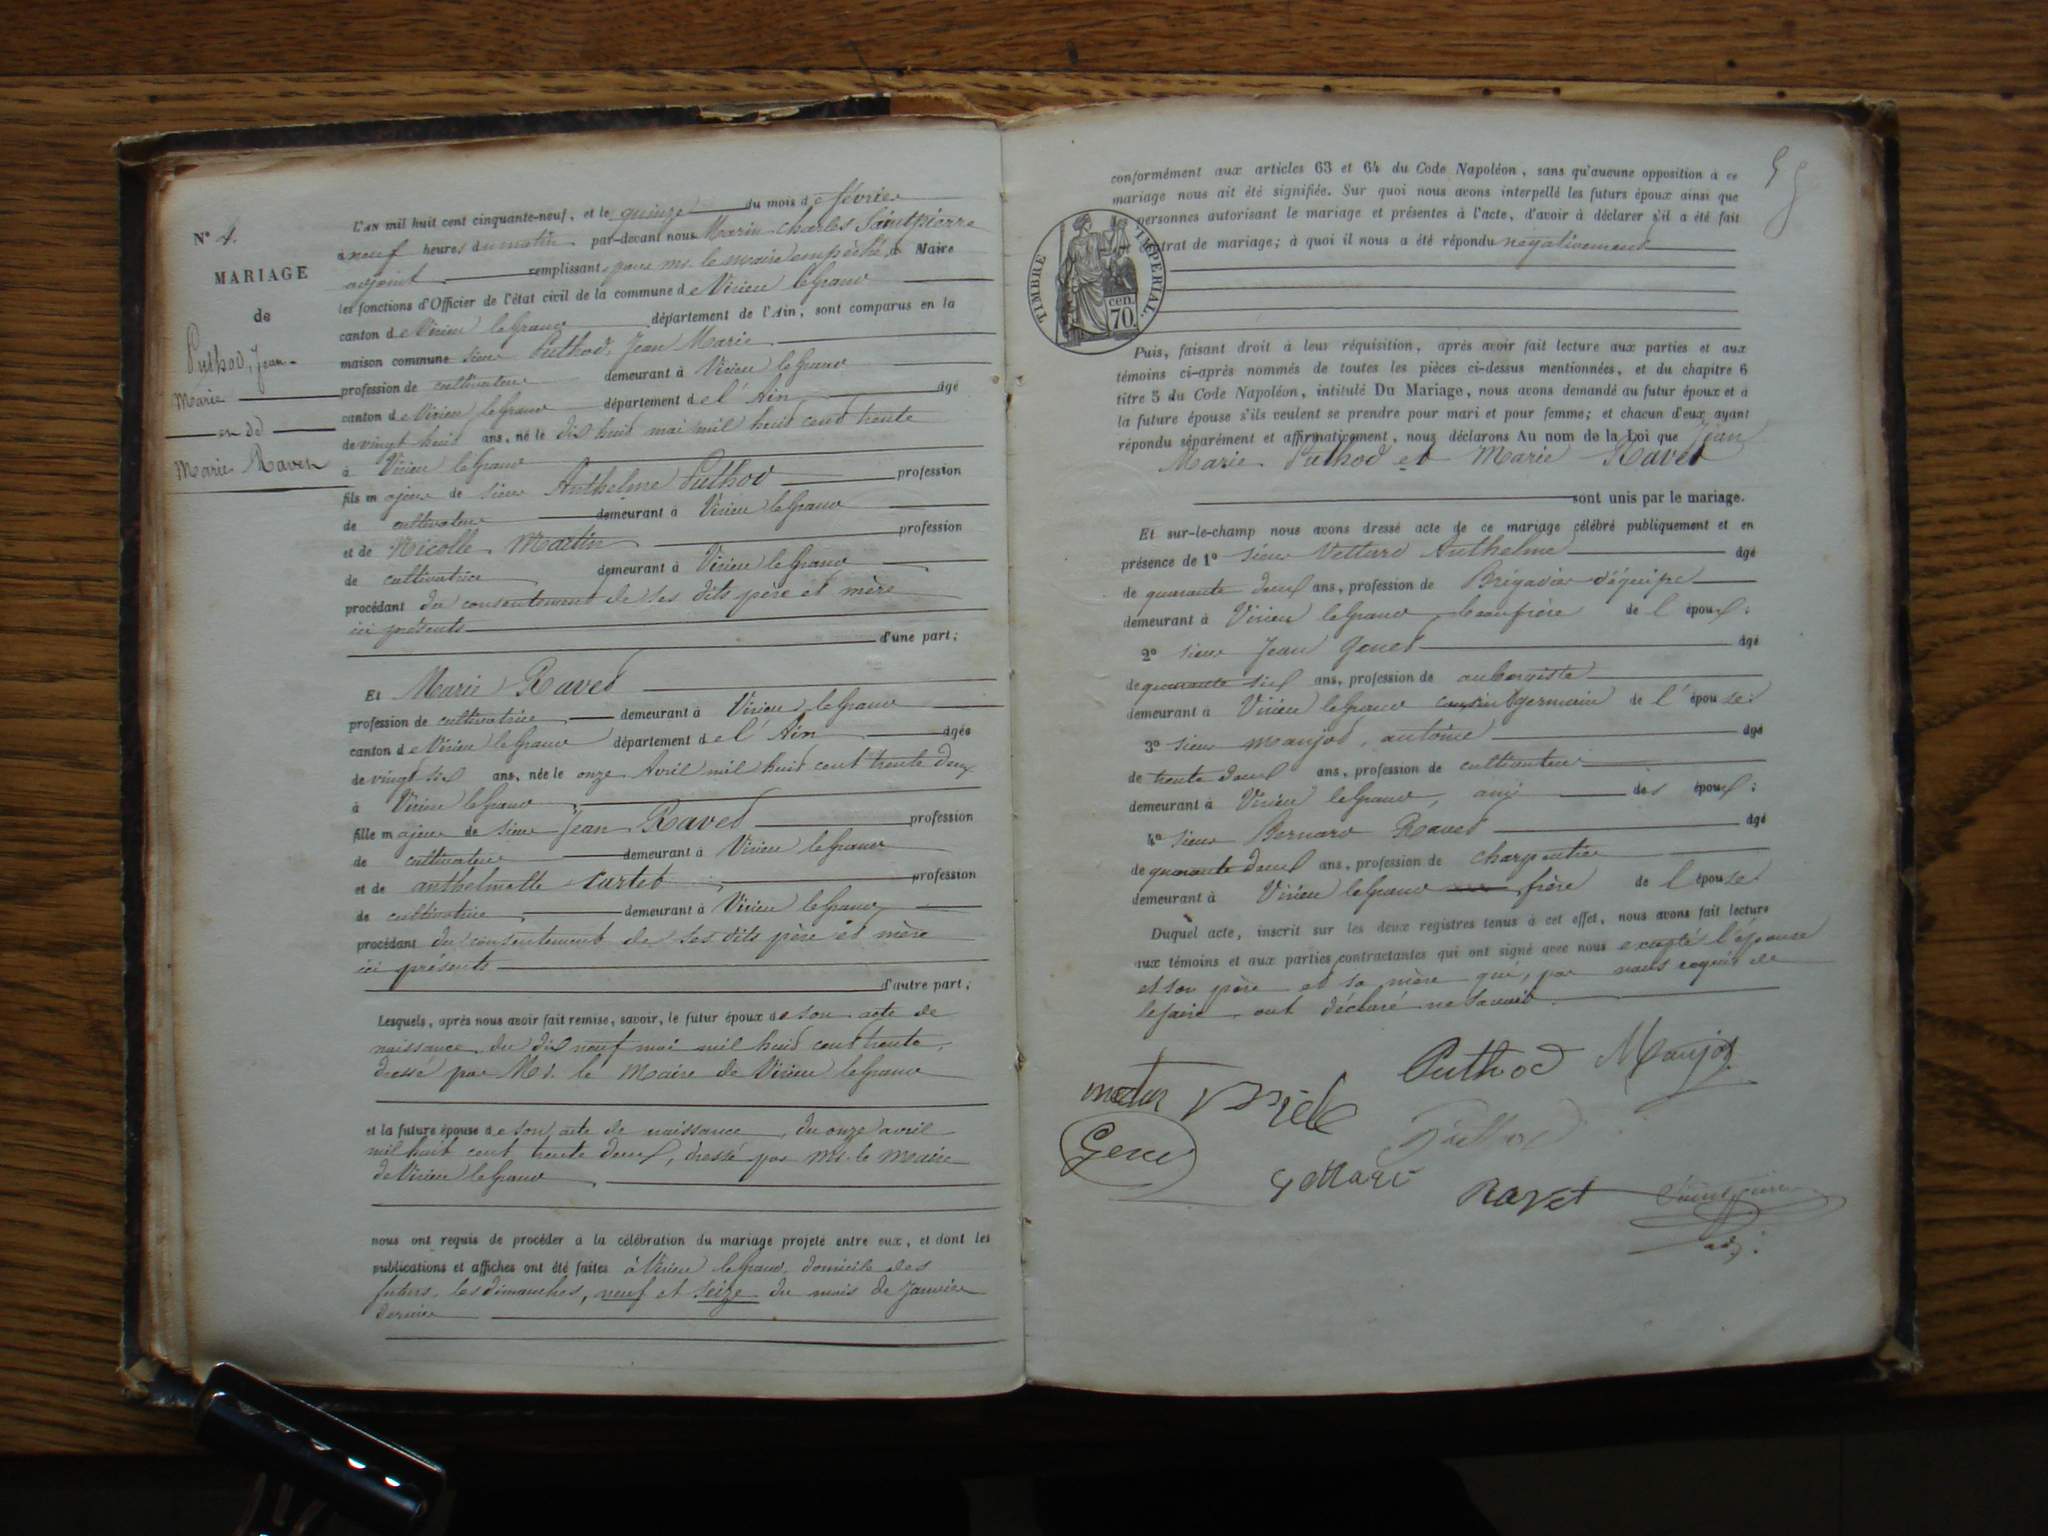 N° 4.
MARIAGE
de
Puthod, Jean-
Marie
et de
Marie Ravet
L'AN mil huit cent cinquante-neuf, et le quinze du mois de février
à neuf heures du matin par-devant nous Marin Charles Saintpierre
adjoint remplissant, pour mr. le maire empêché, Maire
les fonctions d'Officier de l'état civil de la commune de Virieu leGrand
canton de Virieu leGrand département de l'Ain, sont comparus en la
maison commune sieur Puthod, Jean Marie
profession de cultivateur demeurant à Virieu leGrand
canton de Virieu leGrand département de l'Ain âgé
de vingt huit ans, né le dix huit mai mil huit cent trente
à Virieu leGrand
fils majeur de sieur Anthelme Puthod profession
de cultivateur demeurant à Virieu leGrand
et de Nicolle Martin profession
de cultivatrice demeurant à Virieu leGrand
procédant du consentement de ses dits père et mère
ici présents d'une part;
Et Marie Ravet
profession de cultivatrice demeurant à Virieu leGrand
canton de Virieu leGrand département de l'Ain âgée
de vingt six ans, née le onze Avril mil huit cent trente deux
à Virieu leGrand
fille majeure de sieur Jean Ravet profession
de cultivateur demeurant à Virieu leGrand
et de anthelmette Curtet profession
de cultivatrice demeurant à Virieu leGrand
procédant du consentement de ses dits père et mère
ici présents
d'autre part;
Lesquels, après nous avoir fait remise, savoir, le futur époux de son acte de
naissance du dix neuf mai mil huit cent trente,
dressé par Mr. le Maire de Virieu leGrand
et la future épouse de son acte de naissance, du onze avril
mil huit cent trente deux, dressé par Mr. le Maire
de Virieu leGrand
nous ont requis de procéder à la célébration du mariage projeté entre eux, et dont les
publications et affiches ont été faites à Virieu leGrand, domicile des
futurs, les dimanches, neuf et seize du mois de Janvier
dernier
conformément aux articles 63 et 64 du Code Napoléon, sans qu'aucune opposition à ce
mariage nous ait été signifiée. Sur quoi nous avons interpellé les futurs époux ainsi que
personnes autorisant le mariage et présentes à l'acte, d'avoir à déclarer s'il a été fait
trat de mariage; à quoi il nous a été répondu négativement
TIMBRE IMPÉRIAL.
70 cen.
Puis, faisant droit à leur réquisition, après avoir fait lecture aux parties et aux
témoins ci-après nommés de toutes les pièces ci-dessus mentionnées, et du chapitre 6
titre 5 du Code Napoléon, intitulé Du Mariage, nous avons demandé au futur époux et à
la future épouse s'ils veulent se prendre pour mari et pour femme; et chacun d'eux ayant
répondu séparément et affirmativement, nous déclarons Au nom de la Loi que Jean
Marie Puthod et Marie Ravet
sont unis par le mariage.
Et sur-le-champ nous avons dressé acte de ce mariage célébré publiquement et en
présence de 1° sieur Vettard Anthelme âgé
de quarante deux ans, profession de Brigadier d'équipe
demeurant à Virieu leGrand, beaufrère de l'époux;
2° sieur Jean Genet âgé
de quarante six ans, profession de aubergiste
demeurant à Virieu leGrand cousin germain de l'épouse:
3° sieur Manjod, antoine âgé
de trente deux ans, profession de cultivateur
demeurant à Virieu leGrand, ami des époux;
4° sieur Bernard Ravet âgé
de quarante deux ans, profession de charpentier
demeurant à Virieu leGrand frère de l'épouse.
Duquel acte, inscrit sur les deux registres tenus à cet effet, nous avons fait lecture
aux témoins et aux parties contractantes qui ont signé avec nous exceptés l'épouse
et son père et sa mère qui, par nous requis de
le faire, ont déclaré ne savoir.
Puthod Manjod
Puthod
Ravet Saintpierre
adj.